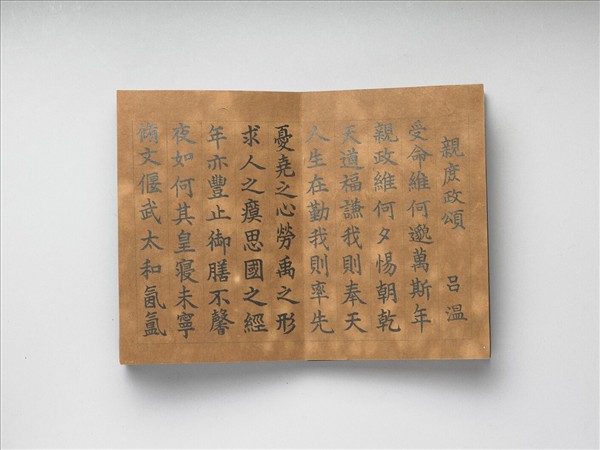 親庶政頌 呂溫
受命維何邈萬斯年
親政維何夕惕朝乾
天道福謙我則奉天
人生在勤我則率先
憂堯之心勞禹之形
求人之瘼思國之經
年亦豐止御膳不馨
夜如何其皇寢未寧
脩文偃武太和氤氳